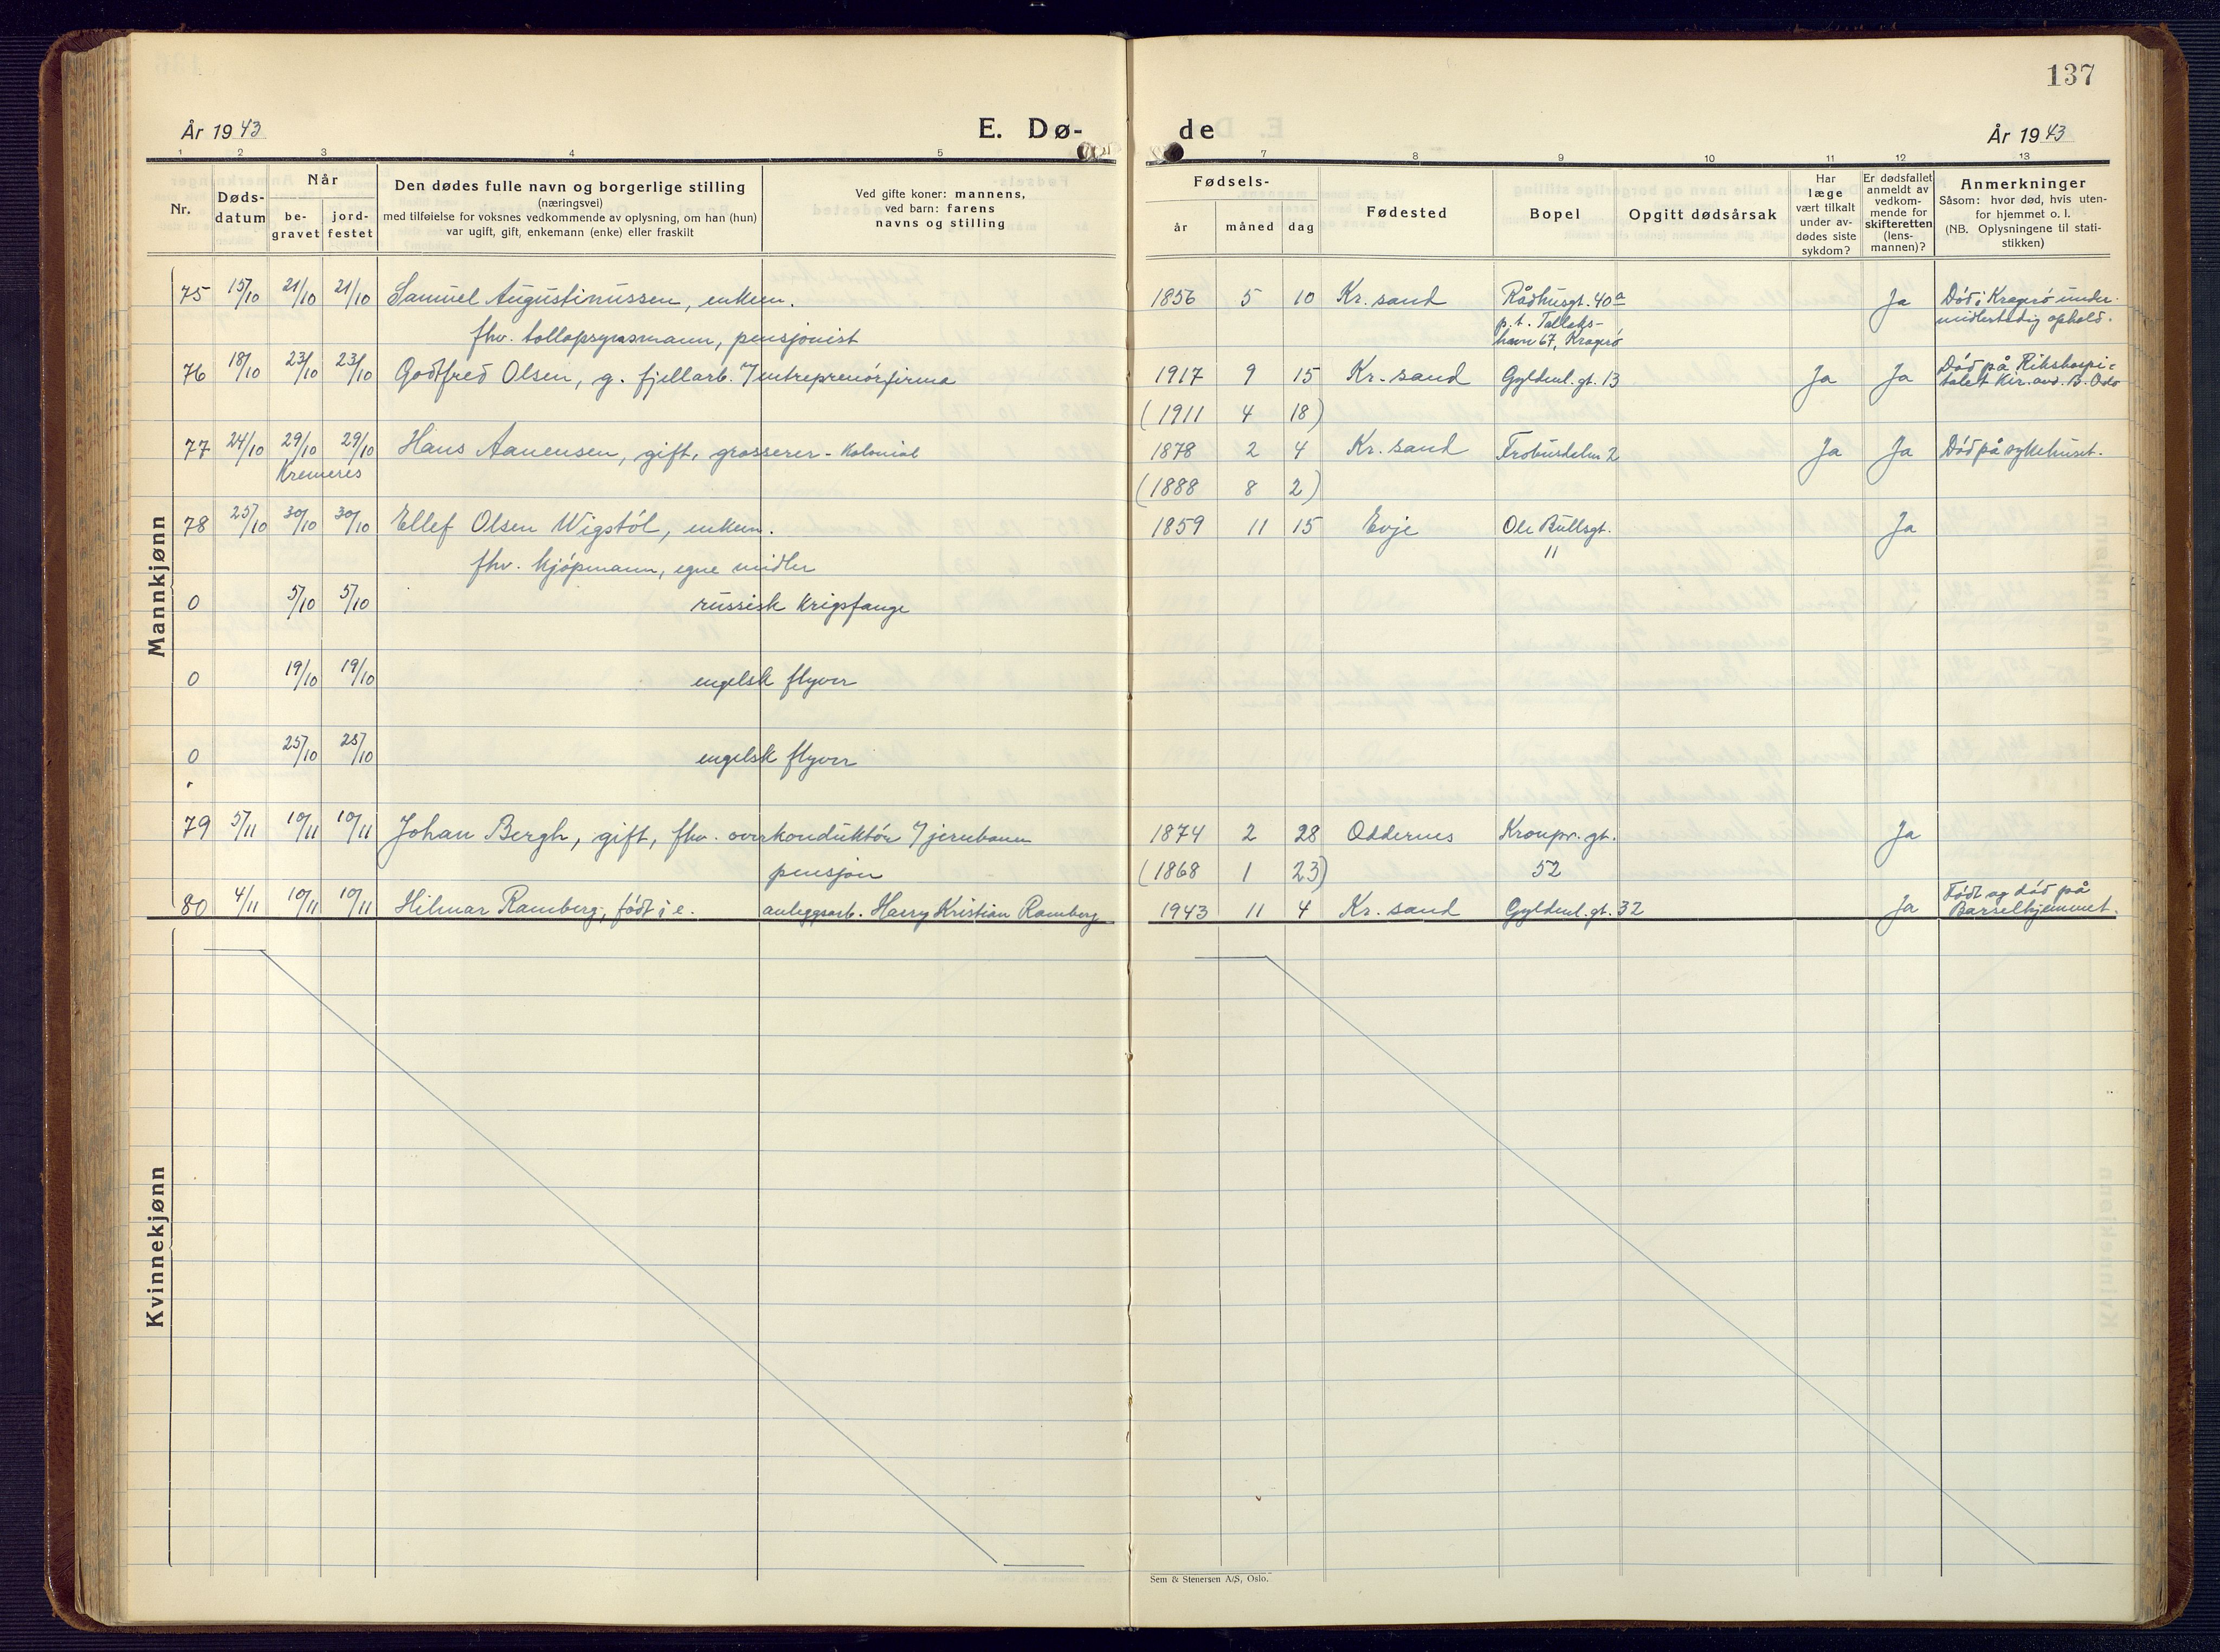 137
År 1943
E. Dø-
de
År 1943
1 2 3 4 5 7 8 9 10 11 12 13
Nr.
Døds-
datum
Når
be-
gravet
jord-
festet
Den dødes fulle navn og borgerlige stilling
(næringsvei)
med tilføielse for voksnes vedkommende av oplysning, om han (hun)
var ugift, gift, enkemann (enke) eller fraskilt
Ved gifte koner: mannens,
ved barn: farens
navns og stilling
Fødsels-
år måned dag
Fødested
Bopel
Opgitt dødsårsak
Har
læge
vært tilkalt
under av-
dødes siste
sykdom?
Er dødsfallet
anmeldt av
vedkom-
mende for
skifteretten
(lens-
mannen)?
Anmerkninger
Såsom: hvor død, hvis uten-
for hjemmet o. l.
(NB. Oplysningene til stati-
stikken)
Mannkjønn
75 15/10 21/10 21/10 Samuel Augustinussen, enkem. 1856 5 10 Kr.sand Rådhusgt. 40a Ja Död i Kragerö under
fhv. tollopsynsmann, pensjonist p.t. Tallaks- midlertidig ophold.
havn 67, Kragerö
76 18/10 23/10 23/10 Godtfred Olsen, g. fjellarb. i/ entreprenörfirma 1917 9 15 Kr.sand Gyldenl. gt. 13 Ja Ja Död på Rikshospi-
talet Kir. avd. B. Oslo
(1911 4 18)
77 24/10 29/10 29/10 Hans Aanensen, gift, grosserer - Kolonial 1878 2 4 Kr.sand Ja Ja Död på sykehuset.
Kremeres (1888 8 2)
78 25/10 30/10 30/10 Ellef Olsen Wigstöl, enkem. 1859 11 15 Evje Ole Bullsgt. Ja
fhv. kjöpmann, egne midler 11
0 5/10 5/10 russisk krigsfange
0 19/10 19/10 engelsk flyver
0 25/10 25/10 engelsk flyver
79 5/11 10/11 10/11 Johan Bergh, gift, fhv. overkonduktör v/ jernbanen 1874 2 28 Oddernes Kronpr. gt. Ja
pensjon (1868 1 23) 52
80 4/11 10/11 10/11 Hilmar Ramberg, födt i e. anleggsarb. Harry Kristian Ramberg 1943 11 4 Kr.sand Gyldenl. gt. 32 Ja Födt og död på
Barselhjemmet.
Kvinnekjønn
Sem & Stenersen A/S, Oslo.